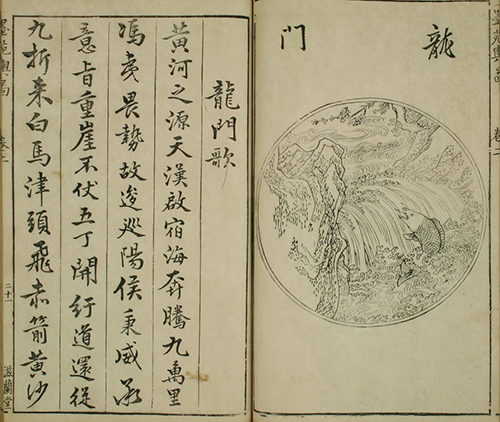 龍門
龍門歌
黃河之源天漢啟宿海奔騰九萬里
馮夷畏勢故逡巡陽侯秉威承
意旨重崖不伏五丁開行道還從
九折来白馬津頭飛赤箭黃沙
二十一
滋蘭堂